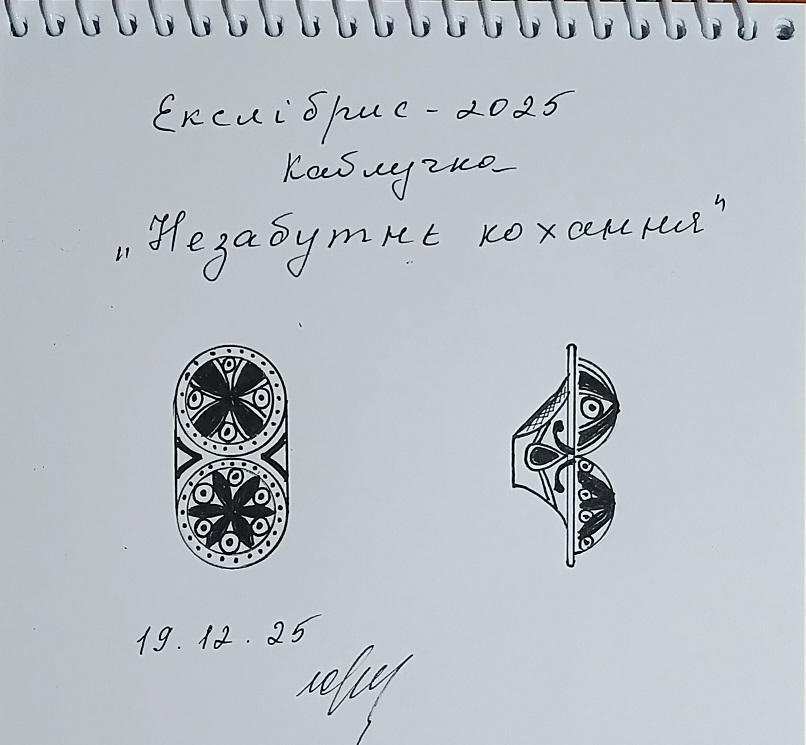 Екслібрис - 2025
Каблучка
„Незабутнє кохання”
19.12.25